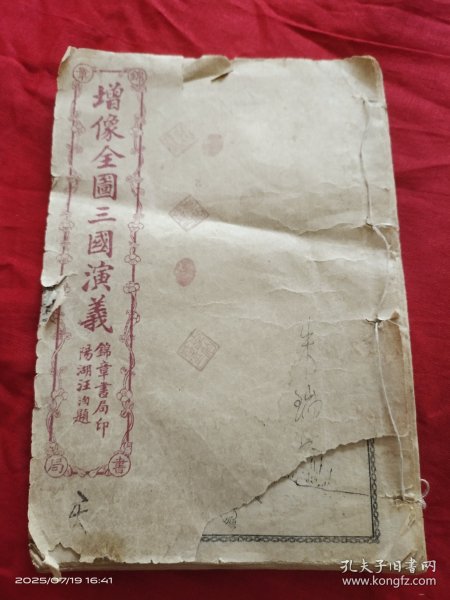 增像全圖三國演義
錦章書局印
陽湖汪洵題
錦
章
書
局
朱
瑞
2025/07/19 16:41
孔夫子旧书网
www.kongfz.com